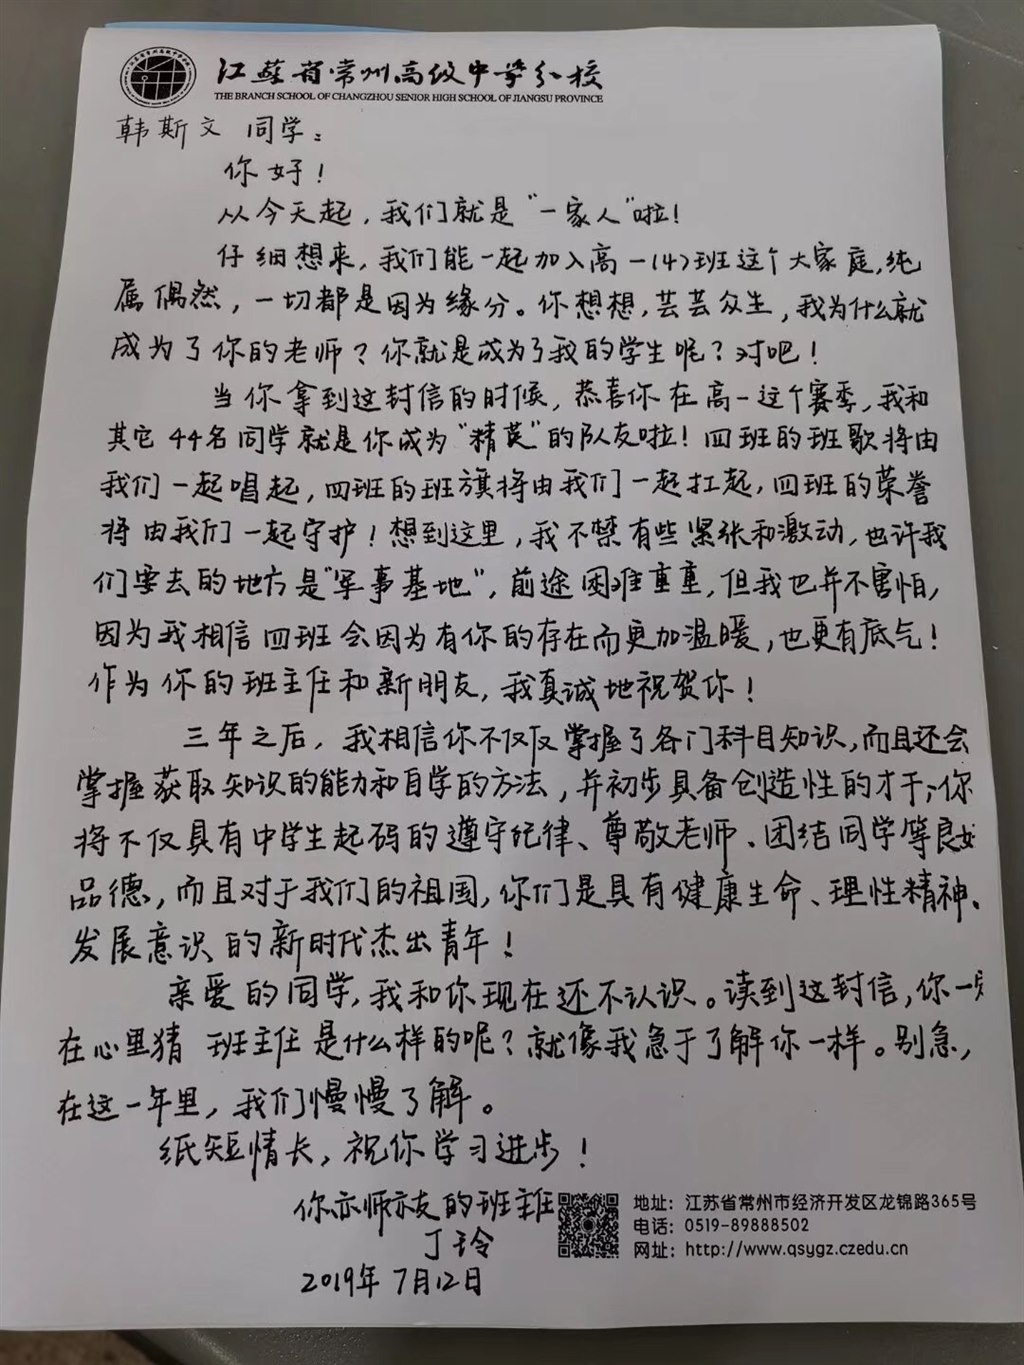 江蘇省常州高级中学分校
THE BRANCH SCHOOL OF CHANGZHOU SENIOR HIGH SCHOOL OF JIANGSU PROVINCE
韩斯文 同学：
你好！
从今天起，我们就是“一家人”啦！
仔细想来，我们能一起加入高一(4)班这个大家庭，纯
属偶然，一切都是因为缘分。你想想，芸芸众生，我为什么就
成为了你的老师？你就是成为了我的学生呢？对吧！
当你拿到这封信的时候，恭喜你在高一这个赛季，我和
其它44名同学就是你成为“精英”的队友啦！四班的班歌将由
我们一起唱起，四班的班旗将由我们一起扛起，四班的荣誉
将由我们一起守护！想到这里，我不禁有些紧张和激动，也许我
们要去的地方是“军事基地”，前途困难重重，但我也并不害怕，
因为我相信四班会因为有你的存在而更加温暖，也更有底气！
作为你的班主任和新朋友，我真诚地祝贺你！
三年之后，我相信你不仅仅掌握了各门科目知识，而且还会
掌握获取知识的能力和自学的方法，并初步具备创造性的才干；你
将不仅具有中学生起码的遵守纪律、尊敬老师、团结同学等良好
品德，而且对于我们的祖国，你们是具有健康生命、理性精神、
发展意识的新时代杰出青年！
亲爱的同学，我和你现在还不认识。读到这封信，你一定
在心里猜 班主任是什么样的呢？就像我急于了解你一样。别急，
在这一年里，我们慢慢了解。
纸短情长，祝你学习进步！
你亦师亦友的班主任
丁玲
2019年7月12日
地址：江苏省常州市经济开发区龙锦路365号
电话：0519-89888502
网址：http://www.qsygz.czedu.cn